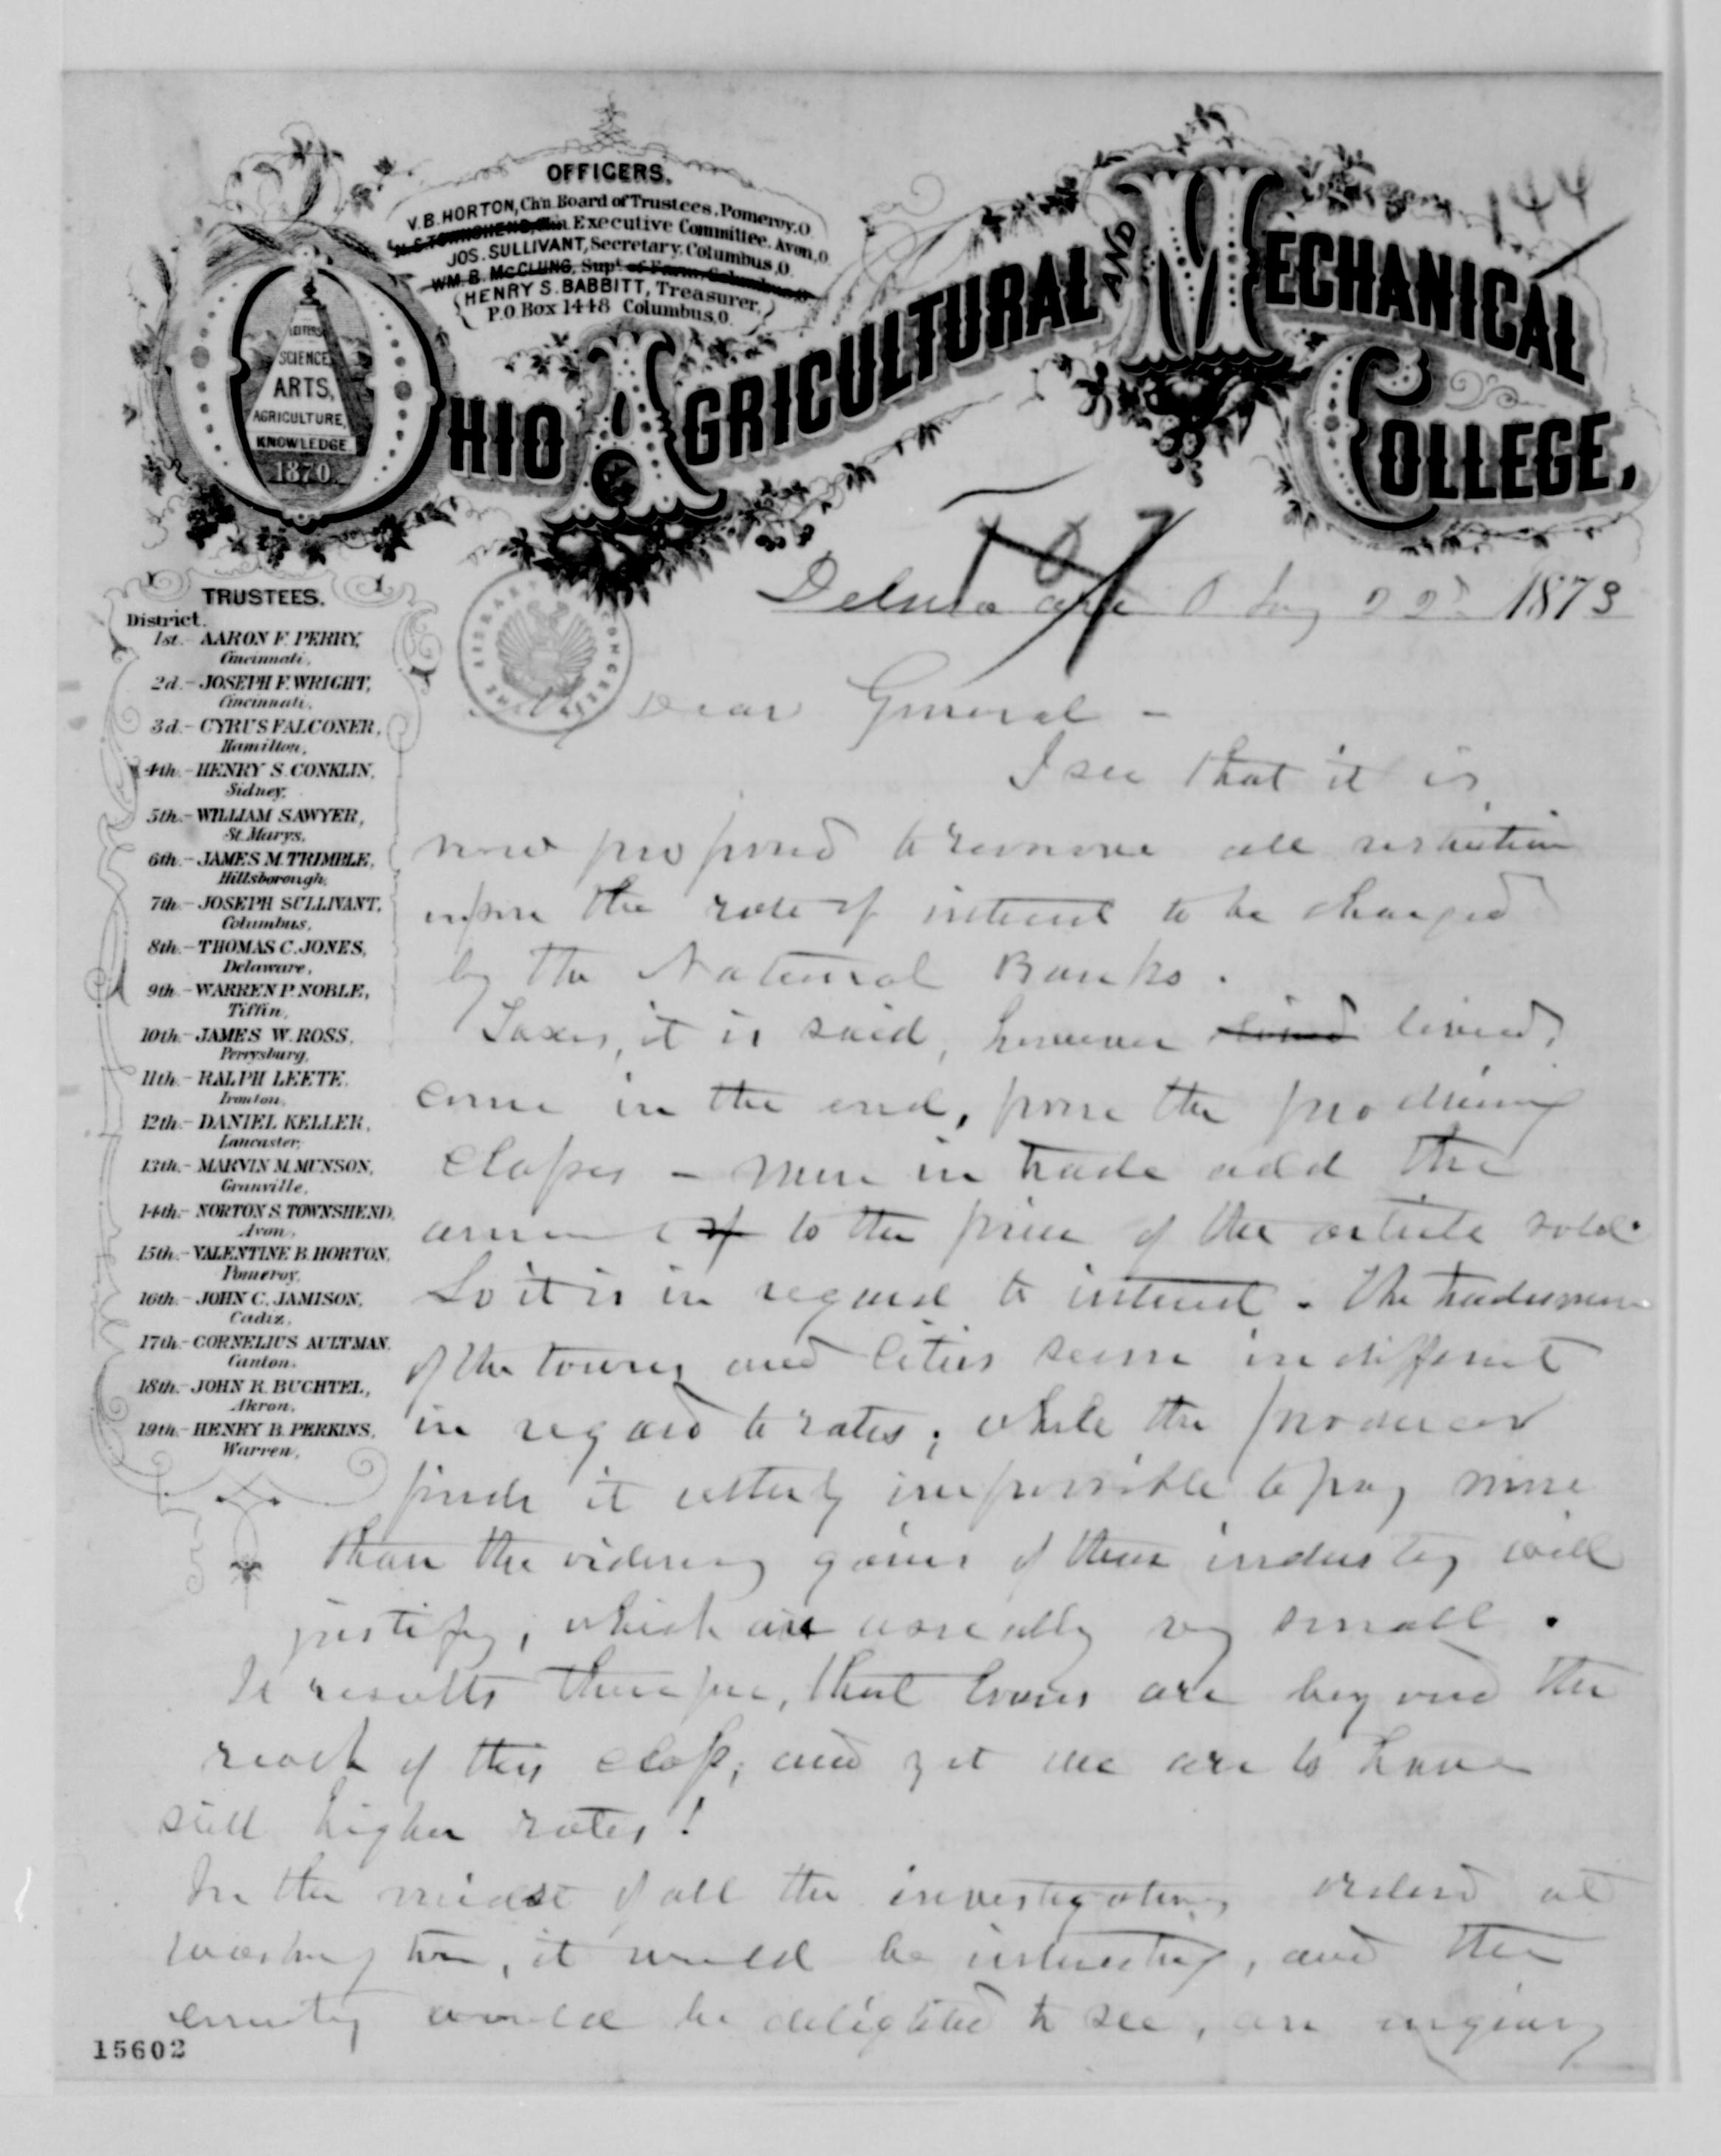 OFFICERS.
V.B. HORTON, Ch'n. Board of Trustees, Pomeroy, O
N.S. TOWNSHEND, Ch'n Executive Committee. Avon, O.
JOS. SULLIVANT, Secretary, Columbus, O.
WM. B. McCLUNG, Supt of Farm, Columbus, O
HENRY S. BABBITT, Treasurer,
P.O. Box 1448 Columbus, O.
144
LETTERS
SCIENCE,
ARTS,
AGRICULTURE,
KNOWLEDGE
1870
OHIO AGRICULTURAL AND MECHANICAL
COLLEGE,
Delaware O 22d 1873
TRUSTEES.
District.
1st.- AARON F. PERRY,
Cincinnati,
2d.- JOSEPH F. WRIGHT,
Cincinnati,
3d.- CYRUS FALCONER,
Hamilton,
4th.- HENRY S. CONKLIN,
Sidney,
5th.- WILLIAM SAWYER,
St. Marys,
6th.- JAMES M. TRIMBLE,
Hillsborough,
7th.- JOSEPH SULLIVANT,
Columbus,
8th.- THOMAS C. JONES,
Delaware,
9th.- WARREN P. NOBLE,
Tiffin,
10th.- JAMES W. ROSS,
Perrysburg,
11th.- RALPH LEETE,
Ironton,
12th.- DANIEL KELLER,
Lancaster,
13th.- MARVIN M. MUNSON,
Granville,
14th.- NORTON S. TOWNSHEND,
Avon,
15th.- VALENTINE B. HORTON,
Pomeroy,
16th.- JOHN C. JAMISON,
Cadiz,
17th.- CORNELIUS AULTMAN,
Canton.
18th.- JOHN R. BUCHTEL,
Akron,
19th.- HENRY B. PERKINS,
Warren,
Dear General -
I see that it is
now proposed to remove all restriction
upon the rate of interest to be charged
by the National Banks.
Taxes, it is said, however levied,
come in the end, from the producing
classes - men in trade add the
amount to the price of the article sold.
So it is in regard to interest. The tradesmen
of the towns and cities seem indifferent
in regard to rates; while the producer
finds it utterly impossible to pay more
than the gains of their industry will
justify, which are usually very small.
It results therefore, that loans are beyond the
reach of this class; and yet we are to have
still higher rates!
In the midst of all the investigations ordered at
Washington, it would be interesting, and the
country would be delighted to see, an inquiry
15602